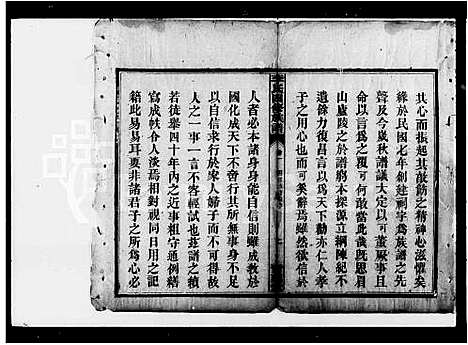 其心而振起其敝飭之精神心滋懼矣
緣於民國老年創建祠宇為族譜之先
聲及今歲秋譜議大定以可董厥事且
命以言為之覆何可敢當然尚
山廬陵之於譜窮本探源立綱陳紀不
遺餘力復昌言以為天下勸亦仁人孝
子之用心也而可矣辭焉雖然欲信於
人者必本諸身身能自信則雖成教於
國化成天下不啻行其所無事身不足
以自信求行於家人婦子而不可得
人之一事一言不容輕試也茲譜之續
若徒舉四十年內之近事粗守通例繕
寫成帙令人淡焉相對視同日用之記
籍此易易耳要非諸君子之所為心必